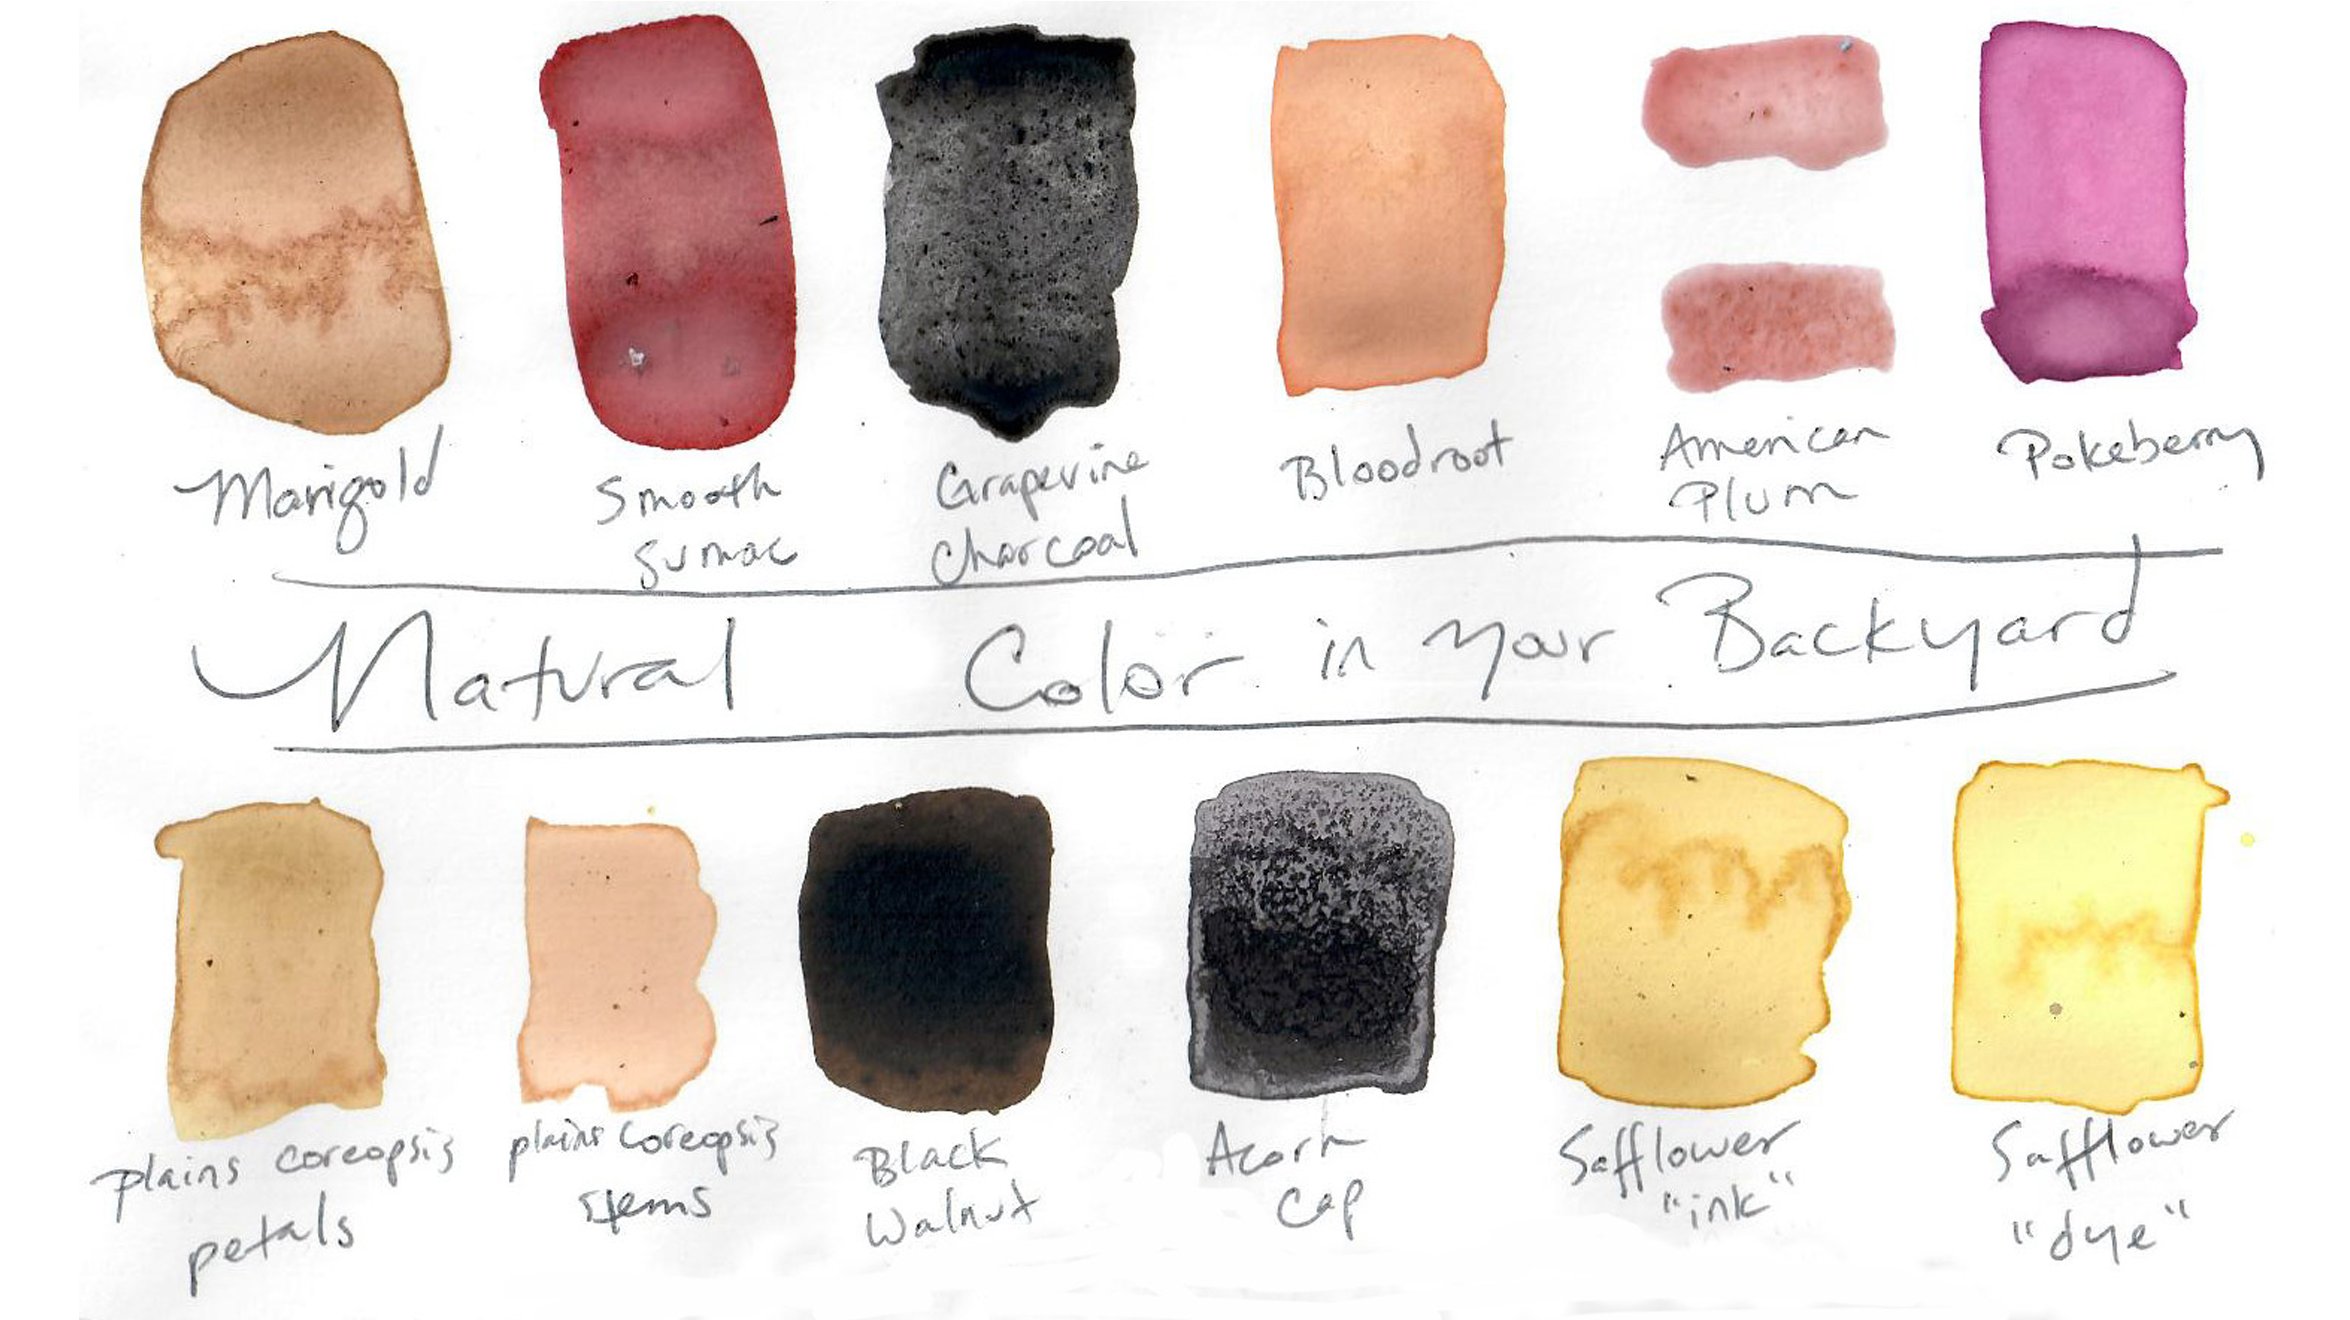 Marigold
Smooth
Sumac
Grapevine
Charcoal
Bloodroot
American
Plum
Pokeberry
Natural Color in your Backyard
plains coreopsis
petals
plains coreopsis
stems
Black
Walnut
Acorn
Cap
Safflower
"ink"
Safflower
"dye"